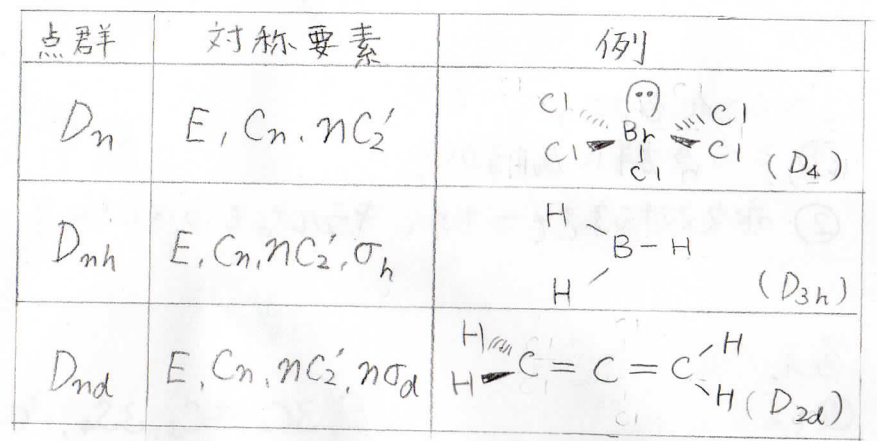 点群 対称要素 例
Dn E, Cn, nC2′ Cl Br Cl Cl Cl Cl (D4)
Dnh E, Cn, nC2′, σh H B－H H (D3h)
Dnd E, Cn, nC2′, nσd H H C=C=C H H (D2d)